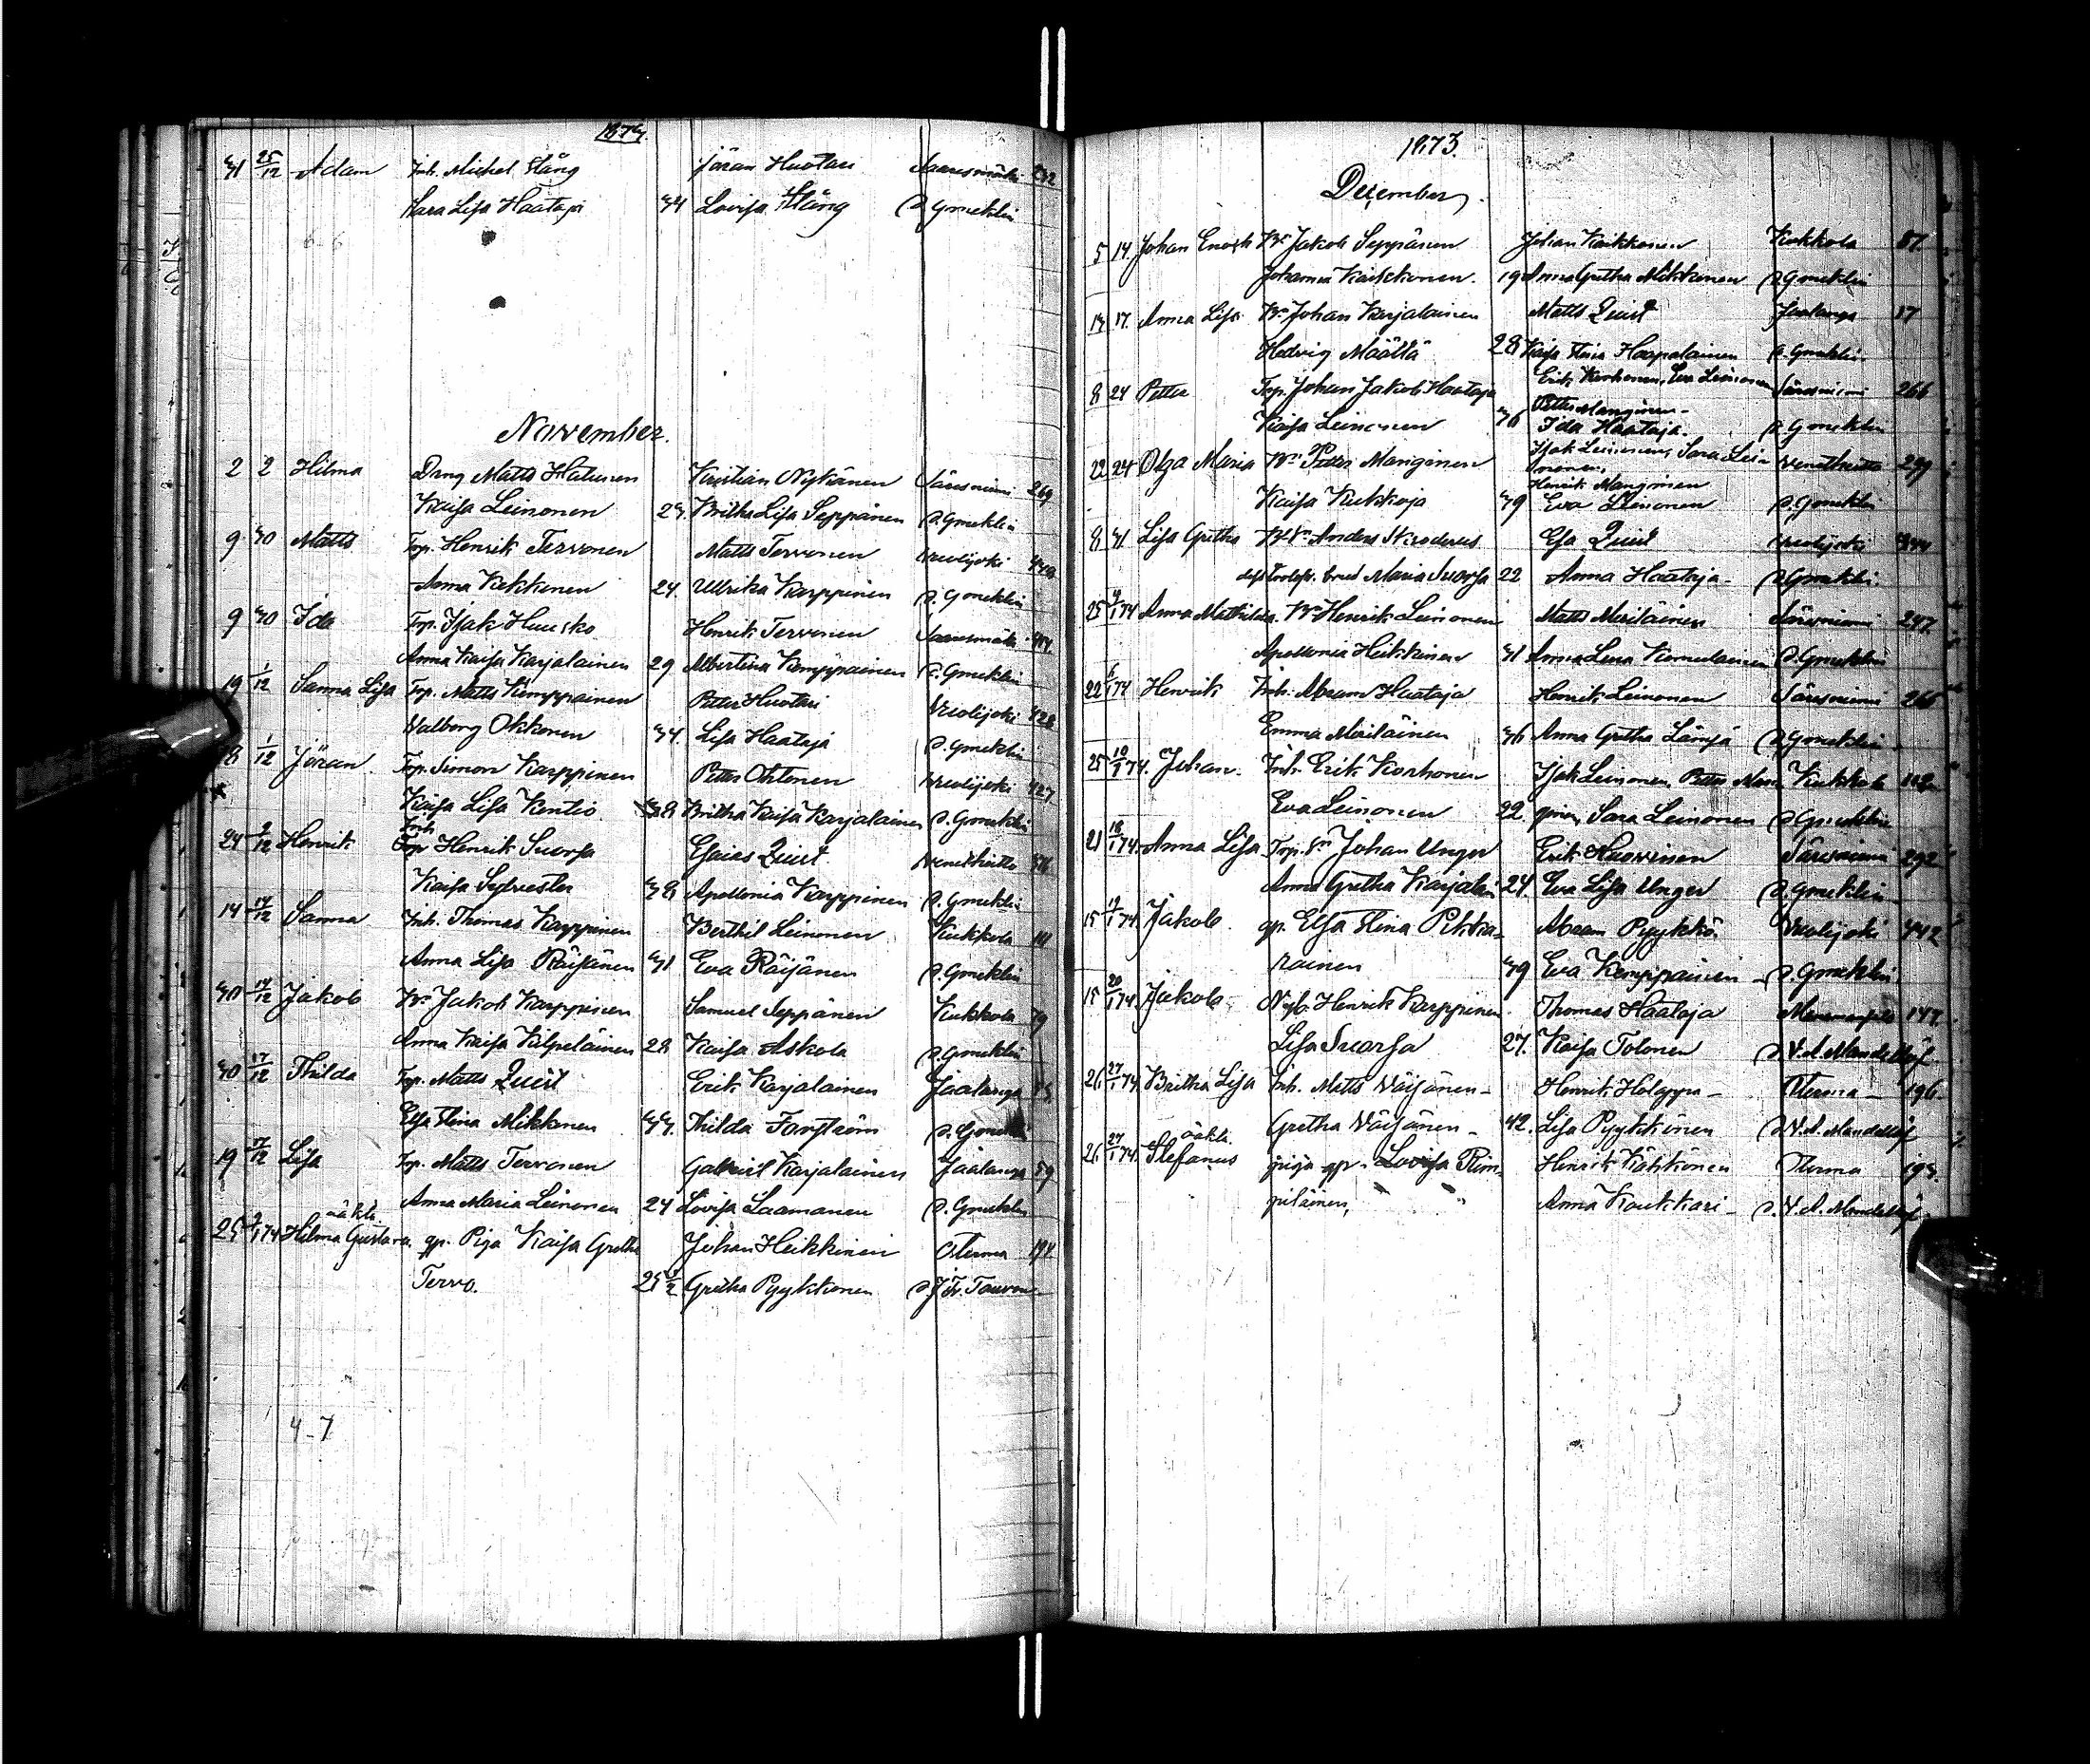 1873.
31 25/12 Adam Inh. Michel Häng Jöran Huotari Saaresmäki 232
Sara Lisa Haataja 34 Lovisa Häng d. Gmeklin
November.
2 2 Hilma Dräng Matts Hatunen Kristian Nykänen Säresniemi 269
Kaisa Leinonen 23 Britha Lisa Seppänen d. Gmeklin
9 30 Matts Torp. Henrik Tervonen Matts Tervonen Vuolijoki
Anna Kekkonen 24. Ulrika Karppinen d. Gmeklin
9 30 Ida Torp. Isak Huusko Henrik Tervonen Saaresmäki
Anna Kaisa Karjalainen 29 Albertina Kemppainen d. Gmeklin
19 1/12 Sanna Lisa Torp. Matts Kemppainen Petter Huotari Vuolijoki 428
Walborg Okkonen 34. Lisa Haataja d. Gmeklin
28 1/12 Jöran Torp. Simon Karppinen Petter Ohtonen Vuolijoki 427
Kaisa Lisa Kentio 38 Britha Kaisa Karjalainen d. Gmeklin
24 /12 Henrik Inh. Henrik Suorsa Esaias Quist Venetheitto
Kaisa Sylvester 38 Apollonia Karppinen d. Gmeklin
14 14/12 Sanna Inh. Thomas Karppinen Berthil Leinonen Kukkola 111
Anna Lisa Räisänen 31 Eva Räisänen d. Gmeklin
30 14/12 Jakob Bd. Jakob Karppinen Samuel Seppänen Kukkola 79
Anna Kaisa Kilpeläinen 28 Kaisa Askola d. Gmeklin
30 17/12 Thilda Torp. Matts Quist Erik Karjalainen Jaalanga
Elsa Stina Mikkonen 33. Thilda Forsström d. Gmeklin
19 17/12 Lisa Torp. Matts Tervonen Gabriel Karjalainen Jaalanga 59
Anna Maria Leinonen 24 Lovisa Laamanen d. Gmeklin
oäkta
25 /1 74 Hilma Gustava gp. Piga Kaisa Gretha Johan Heikkinen Oterma 191
Tervo. 25 1/2 Gretha Pyykkönen d. J. Fr. Tauvon
4-7
1873.
December
5 14. Johan Enoch Bd. Jakob Seppänen Johan Kaikkonen Kukkola 87.
Johanna Kaikkonen. 19 Anna Gretha Mikkonen d. Gmeklin
13 17. Anna Lisa Bd. Johan Karjalainen Matts Quist Jaalanga 17
Hedvig Määttä 28 Kaisa Stina Haapalainen d. Gmeklin
8 24 Petter Torp. Johan Jakob Haataja Erik Korhonen, Eva Leinonen Säresniemi 266
Petter Manginen
Kaisa Leinonen 36 Ida Haataja d. Gmeklin
22 24 Olga Maria Bd. Petter Manginen Isak Leinonen, Sara Leinonen, Venetheitto
Henrik Manginen
Kaisa Kukkoja 39 Eva Leinonen d. Gmeklin
8 31 Lisa Gretha Anders Skroderus Esa Quist Vuolijoki
Maria Suorsa 22 Anna Haataja d. Gmeklin
25 /1 74 Anna Mathilda Bd. Henrik Leinonen Matts Meriläinen Säresniemi 247.
Apollonia Heikkinen 31 Anna Lena Komulainen d. Gmeklin
22 6/1 74 Henrik Inh. Abram Haataja Henrik Leinonen Säresniemi 265
Emma Meriläinen 36 Anna Gretha Lämsä d. Gmeklin
25 10/1 74. Johan. Inh. Erik Korhonen Isak Leinonen, Petter Man- Kukkola
Eva Leinonen 22. ginen, Sara Leinonen d. Gmeklin
21 18/1 74. Anna Lisa Torp. Sn Johan Unger Erik Huovinen Säresniemi 292
Anna Gretha Karjalain 24. Eva Lisa Unger d. Gmeklin
15 19/1 74. Jakob gp. Elsa Stina Pikka- Abram Pyykkö Vuolijoki 442
rainen 39 Eva Kemppainen d. Gmeklin
15 20/1 74. Jakob Nyb. Henrik Karppinen Thomas Haataja 147.
Lisa Suorsa 27. Kaisa Tolonen d. V. A. Mandellöf
26 27/1 74. Britha Lisa Inh. Matts Väisänen Henrik Holappa Oterma 196
Gretha Väisänen 42. Lisa Pyykkönen d. V. A. Mandellöf
oäkta
26 27/1 74. Stefanus piga gp. Lovisa Rim- Henrik Kähkönen Oterma 193.
piläinen, Anna Koukkari d. V. A. Mandellöf